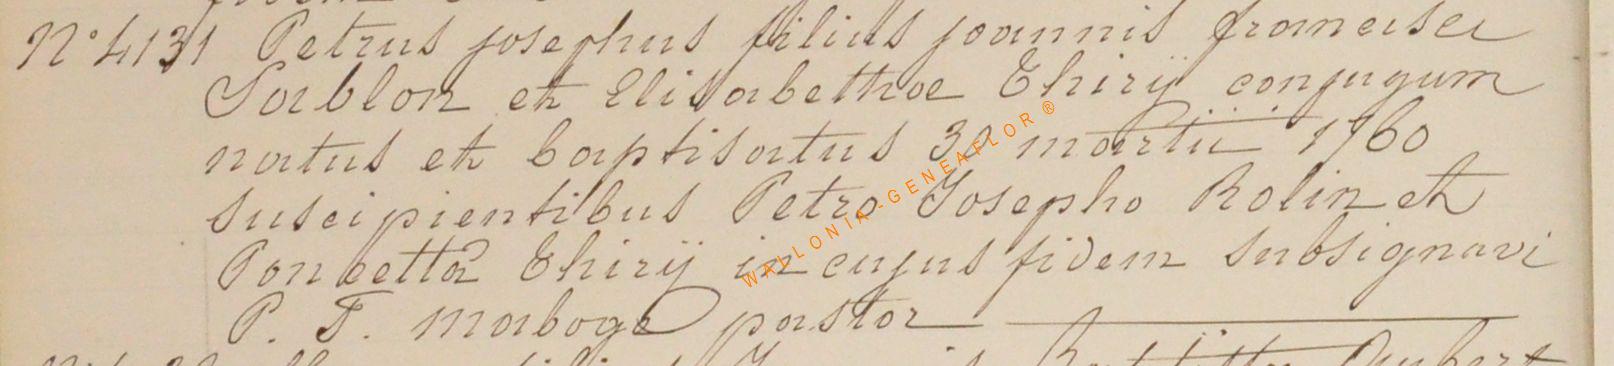 N° 4131 Petrus josephus filius joannis francisci
Sablon et Elisabethae Thirÿ conjugum
natus et baptisatus 30 martii 1760
suscipientibus Petro Josepho Rolin et
Poncetta Thirÿ in cujus fidem subsignavi
P. F. Maboge pastor
WALLONIA-GENEAFLOR ®